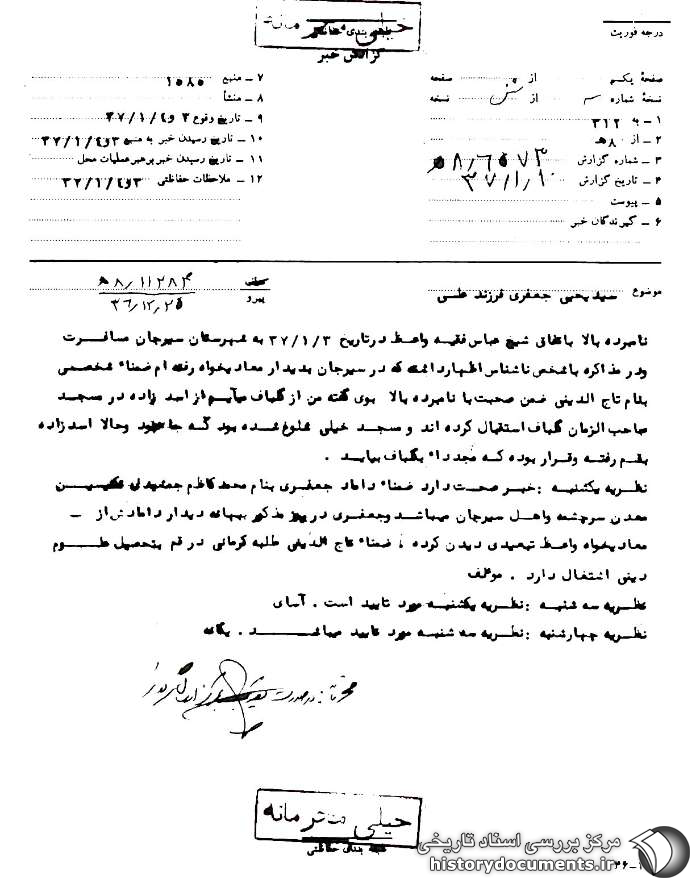 درجه فوریت
خیلی محرمانه
طبقه بندی حفاظتی
گزارش خبر
صفحهٔ یکم از صفحه
نسخهٔ شماره سه از نسخه
۱ ـ به ۳۱۲
۲ ـ از ۸۰هـ
۳ ـ شماره گزارش
۴ ـ تاریخ گزارش ۳۷/۱/۱۰
۵ ـ پیوست
۶ ـ گیرندگان خبر
۷ ـ منبع ۱۵۸۵
۸ ـ منشأ
۹ ـ تاریخ وقوع
۱۰ ـ تاریخ رسیدن خبر به منبع
۱۱ ـ تاریخ رسیدن خبر برهبر عملیات محل
۱۲ ـ ملاحظات حفاظتی
موضوع سیدیحیی جعفری فرزند
پیرو ۳۶/۱۲/۲۵
نامبرده بالا باتفاق شیخ عباس فقیه واعظ در تاریخ ۳۷/۱/۳ به شهرستان سیرجان مسافرت
ودر مذاکره باشخص ناشناس اظهارداشته که در سیرجان بدیدار معادیخواه رفته ام ضمنا" شخصی
بنام تاج الدینی ضمن صحبت با نامبرده بالا بوی گفته من از گلباف میآیم از اسد زاده در مسجد
صاحب الزمان گلباف استقبال کرده اند و مسجد خیلی شلوغ شده بود که جا نبود وحالا اسدزاده
بقم رفته وقرار بوده که مجددا" بگلباف بیاید .
نظریه یکشنبه : خبر صحت دارد ضمنا" داماد جعفری بنام محمدکاظم جمشیدی تکنیسین
معدن سرچشمه واهل سیرجان میباشد وجعفری در روز مذکور ببهانه دیدار دامادش از ـ
معادیخواه واعظ تبعیدی دیدن کرده ، ضمنا" تاج الدینی طلبه کرمانی در قم بتحصیل علوم
دینی اشتغال دارد . موظف
نظریه سه شنبه : نظریه یکشنبه مورد تایید است . آسای
نظریه چهارشنبه : نظریه سه شنبه مورد تایید میباشد . یگانه
خیلی محرمانه
طبقه بندی حفاظتی
مرکز بررسی اسناد تاریخی
historydocuments.ir